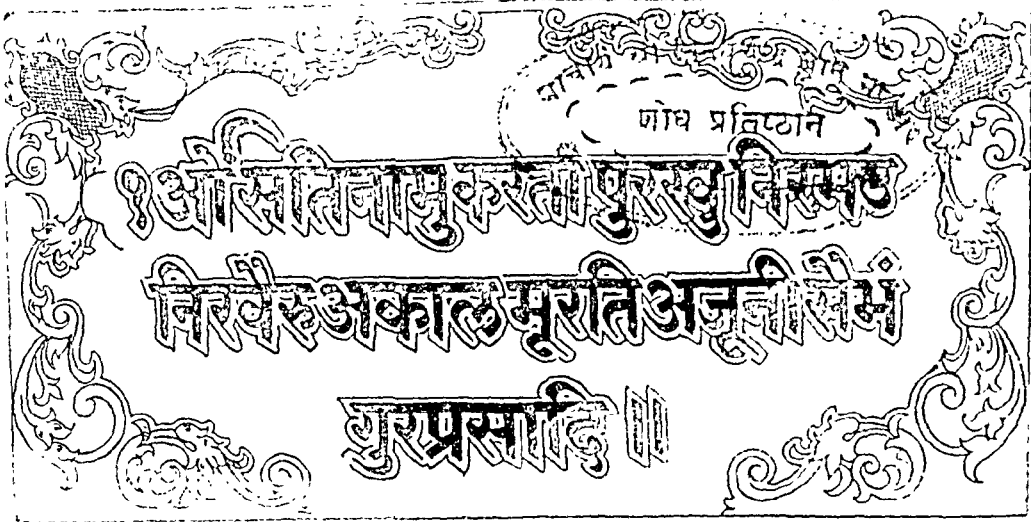 शोध प्रतिष्ठान
१ओंसतिनामुकरतापुरखुनिरभउ
निरवैरुअकालमूरतिअजूनीसैभं
गुरप्रसादि॥